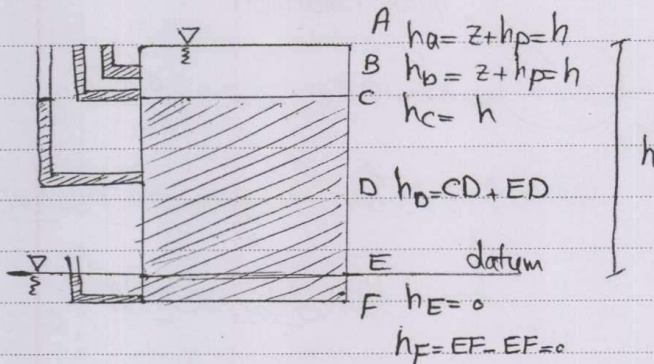 A h_a = z + h_p = h
B h_b = z + h_p = h
C h_c = h
h
D h_D = CD + ED
E datum
F h_E = 0
h_F = EF - EF = 0